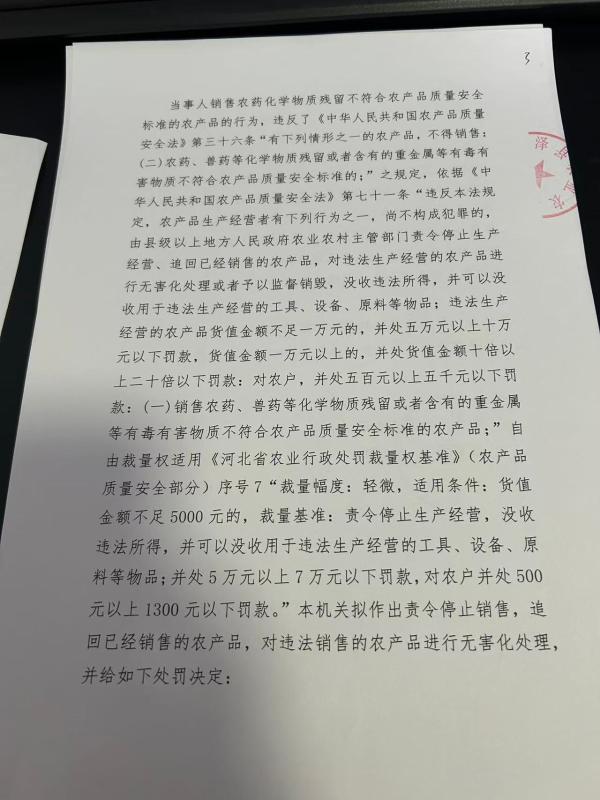 3
当事人销售农药化学物质残留不符合农产品质量安全
标准的农产品的行为，违反了《中华人民共和国农产品质量
安全法》第三十六条“有下列情形之一的农产品，不得销售：
(二)农药、兽药等化学物质残留或者含有的重金属等有毒有
害物质不符合农产品质量安全标准的；”之规定，依据《中
华人民共和国农产品质量安全法》第七十一条“违反本法规
定，农产品生产经营者有下列行为之一，尚不构成犯罪的，
由县级以上地方人民政府农业农村主管部门责令停止生产
经营、追回已经销售的农产品，对违法生产经营的农产品进
行无害化处理或者予以监督销毁，没收违法所得，并可以没
收用于违法生产经营的工具、设备、原料等物品；违法生产
经营的农产品货值金额不足一万元的，并处五万元以上十万
元以下罚款，货值金额一万元以上的，并处货值金额十倍以
上二十倍以下罚款：对农户，并处五百元以上五千元以下罚
款：(一)销售农药、兽药等化学物质残留或者含有的重金属
等有毒有害物质不符合农产品质量安全标准的农产品；”自
由裁量权适用《河北省农业行政处罚裁量权基准》（农产品
质量安全部分）序号7“裁量幅度：轻微，适用条件：货值
金额不足5000元的，裁量基准：责令停止生产经营，没收
违法所得，并可以没收用于违法生产经营的工具、设备、原
料等物品；并处5万元以上7万元以下罚款，对农户并处500
元以上1300元以下罚款。”本机关拟作出责令停止销售，追
回已经销售的农产品，对违法销售的农产品进行无害化处理，
并给如下处罚决定：